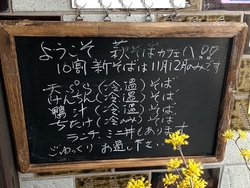 ようこそ 萩そばカフェへ!!
10割 新そばは11月12月のみです
天ぷら(冷・温)そば
けんちん(冷・温)そば
鴨汁(冷・温)そば
ちたけ(冷のみ)そば
ランチ、ミニ丼もあります
ごゆっくり お過し下さい